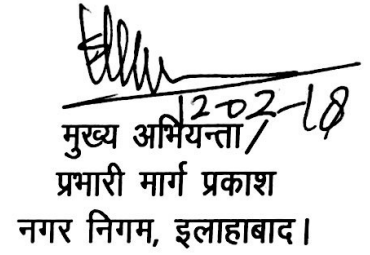 12-02-18
मुख्य अभियन्ता/
प्रभारी मार्ग प्रकाश
नगर निगम, इलाहाबाद।